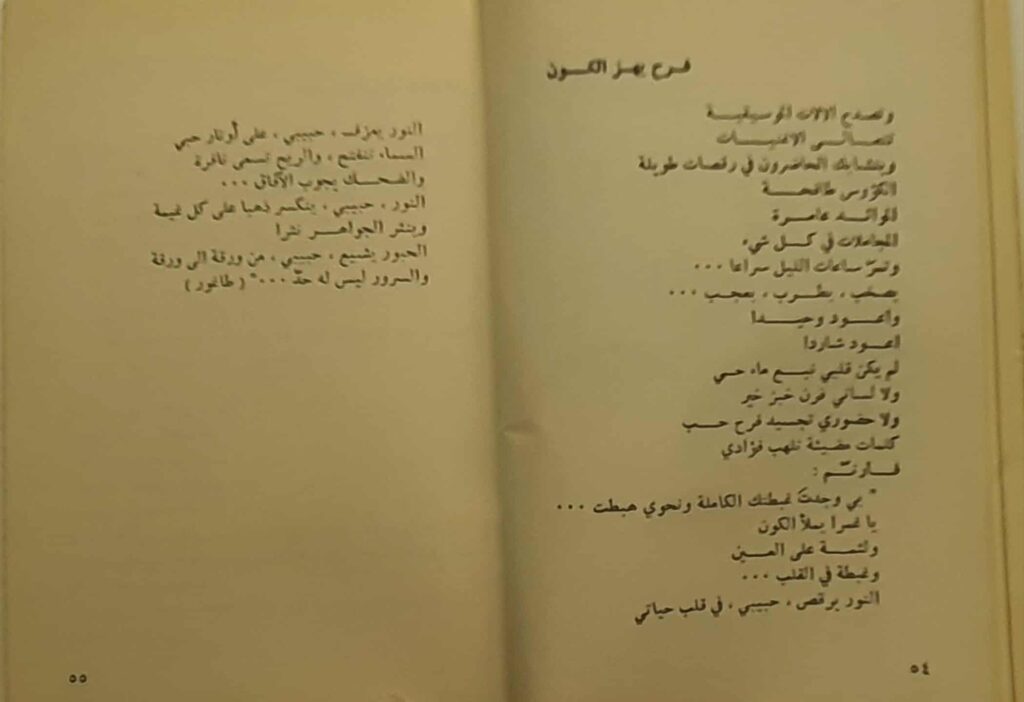 فـرح يهـز الكـون
وتصدح الالات الموسيقيـة
تتصـالـى الاغنيـات
ويتشابك الحاضرون في رقصات طويلة
الكؤوس طافحـة
الموائـد عامـرة
المجاملات في كـل شيء
وتمرّ ساعات الليل سراعا ...
بصخب ، بطـرب ، بعجـب ...
واعـود وحيـدا
اعـود شاردا
لم يكن قلبي نبـع ماء حـي
ولا لساني فرن خبز خير
ولا حضوري تجسيد فرح حـب
كلمات مضيئة تلهب فؤادي
فـارنـّم :
" بي وجدتَ غبطتك الكاملة ونحوي هبطت ...
يا غمرا يملأ الكون
ولثمـة على العـين
وغبطة في القلب ...
النور يرقص ، حبيبي ، في قلب حياتي
٥٤
النور يعزف ، حبيبي ، على أوتار حبي
السماء تنفتح ، والريح تسعى نافرة
والضحـك يجوب الآفاق ...
النور ، حبيبي ، ينكسر ذهبا على كل غيمة
وينثر الجواهـر نثرا
الحبور يشيع ، حبيبي ، من ورقة الى ورقة
والسرور ليس له حدّ ... " ( طاغور )
٥٥